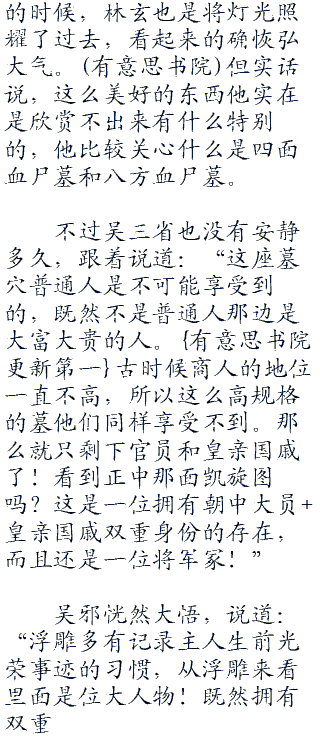 的时候，林玄也是将灯光照
耀了过去，看起来的确恢弘
大气。(有意思书院)但实话
说，这么美好的东西他实在
是欣赏不出来有什么特别
的，他比较关心什么是四面
血尸墓和八方血尸墓。
不过吴三省也没有安静
多久，跟着说道：“这座墓
穴普通人是不可能享受到
的，既然不是普通人那边是
大富大贵的人。{有意思书院
更新第一}古时候商人的地位
一直不高，所以这么高规格
的墓他们同样享受不到。那
么就只剩下官员和皇亲国戚
了！看到正中那面凯旋图
吗？这是一位拥有朝中大员+
皇亲国戚双重身份的存在，
而且还是一位将军冢！”
吴邪恍然大悟，说道：
“浮雕多有记录主人生前光
荣事迹的习惯，从浮雕来看
里面是位大人物！既然拥有
双重